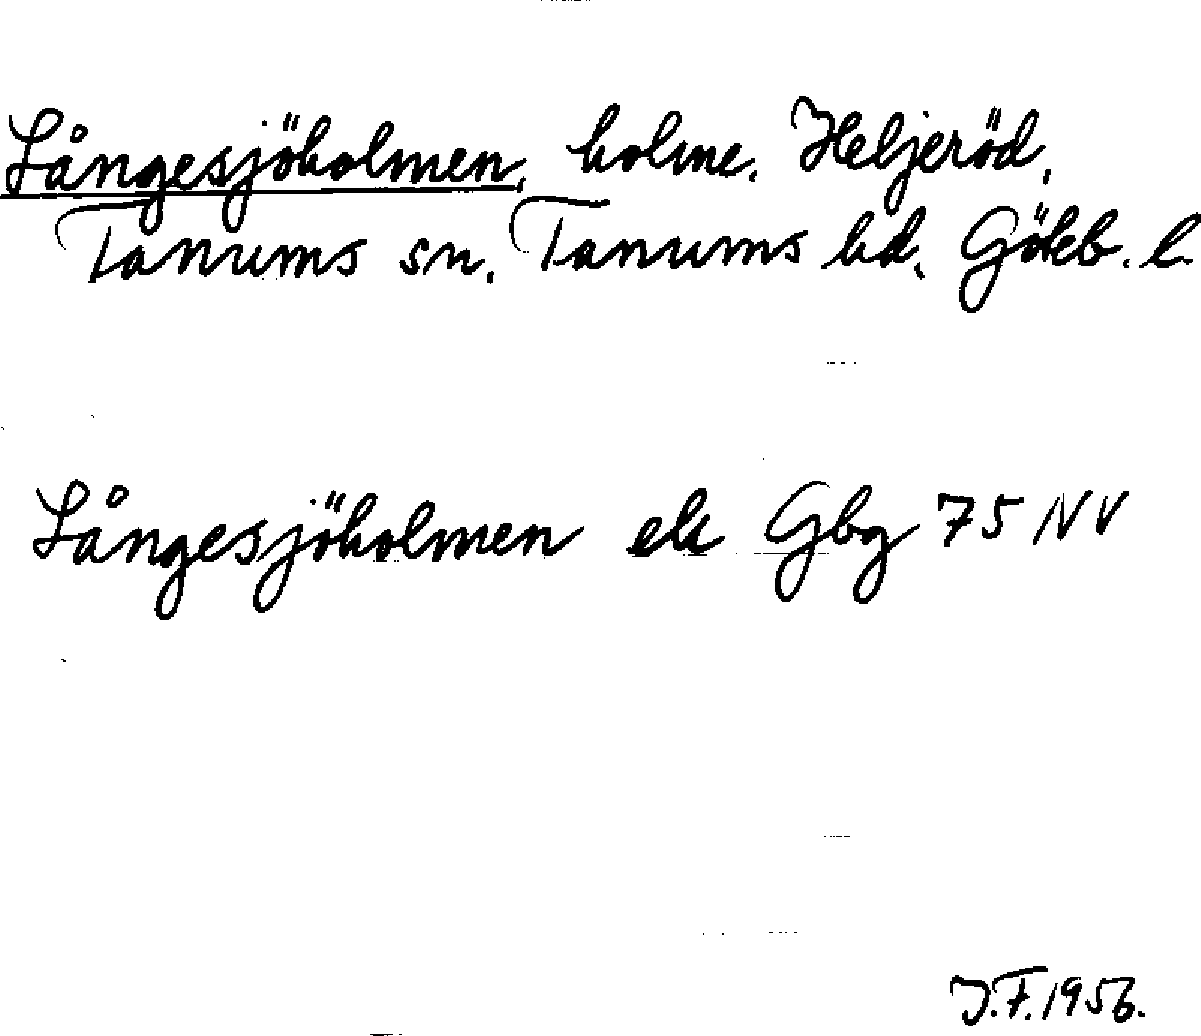 Långesjöholmen, holme. Heljeröd,
Tanums sn, Tanums hd, Göteb. l.
Långesjöholmen ek Gbg 75 NV
J.F. 1956.